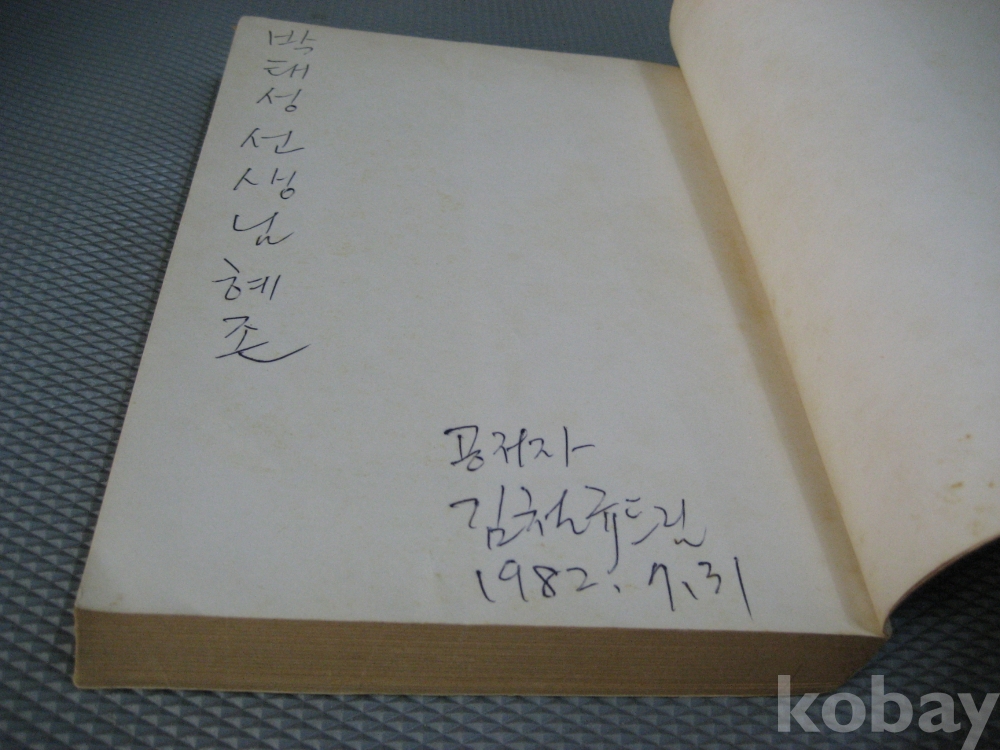 박태성 선생님 혜존
공저자
김천규 드림
1982. 7. 31
kobay